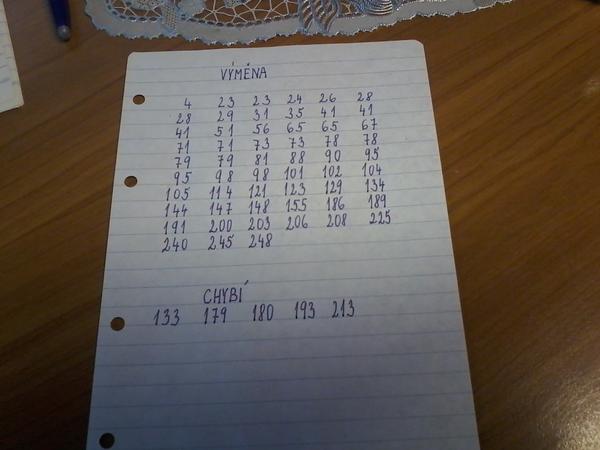 VÝMĚNA
4 23 23 24 26 28
28 29 31 35 41 41
41 51 56 65 65 67
71 71 73 73 78 78
79 79 81 88 90 95
95 98 98 101 102 104
105 114 121 123 129 134
144 147 148 155 186 189
191 200 203 206 208 225
240 245 248
CHYBÍ
133 179 180 193 213